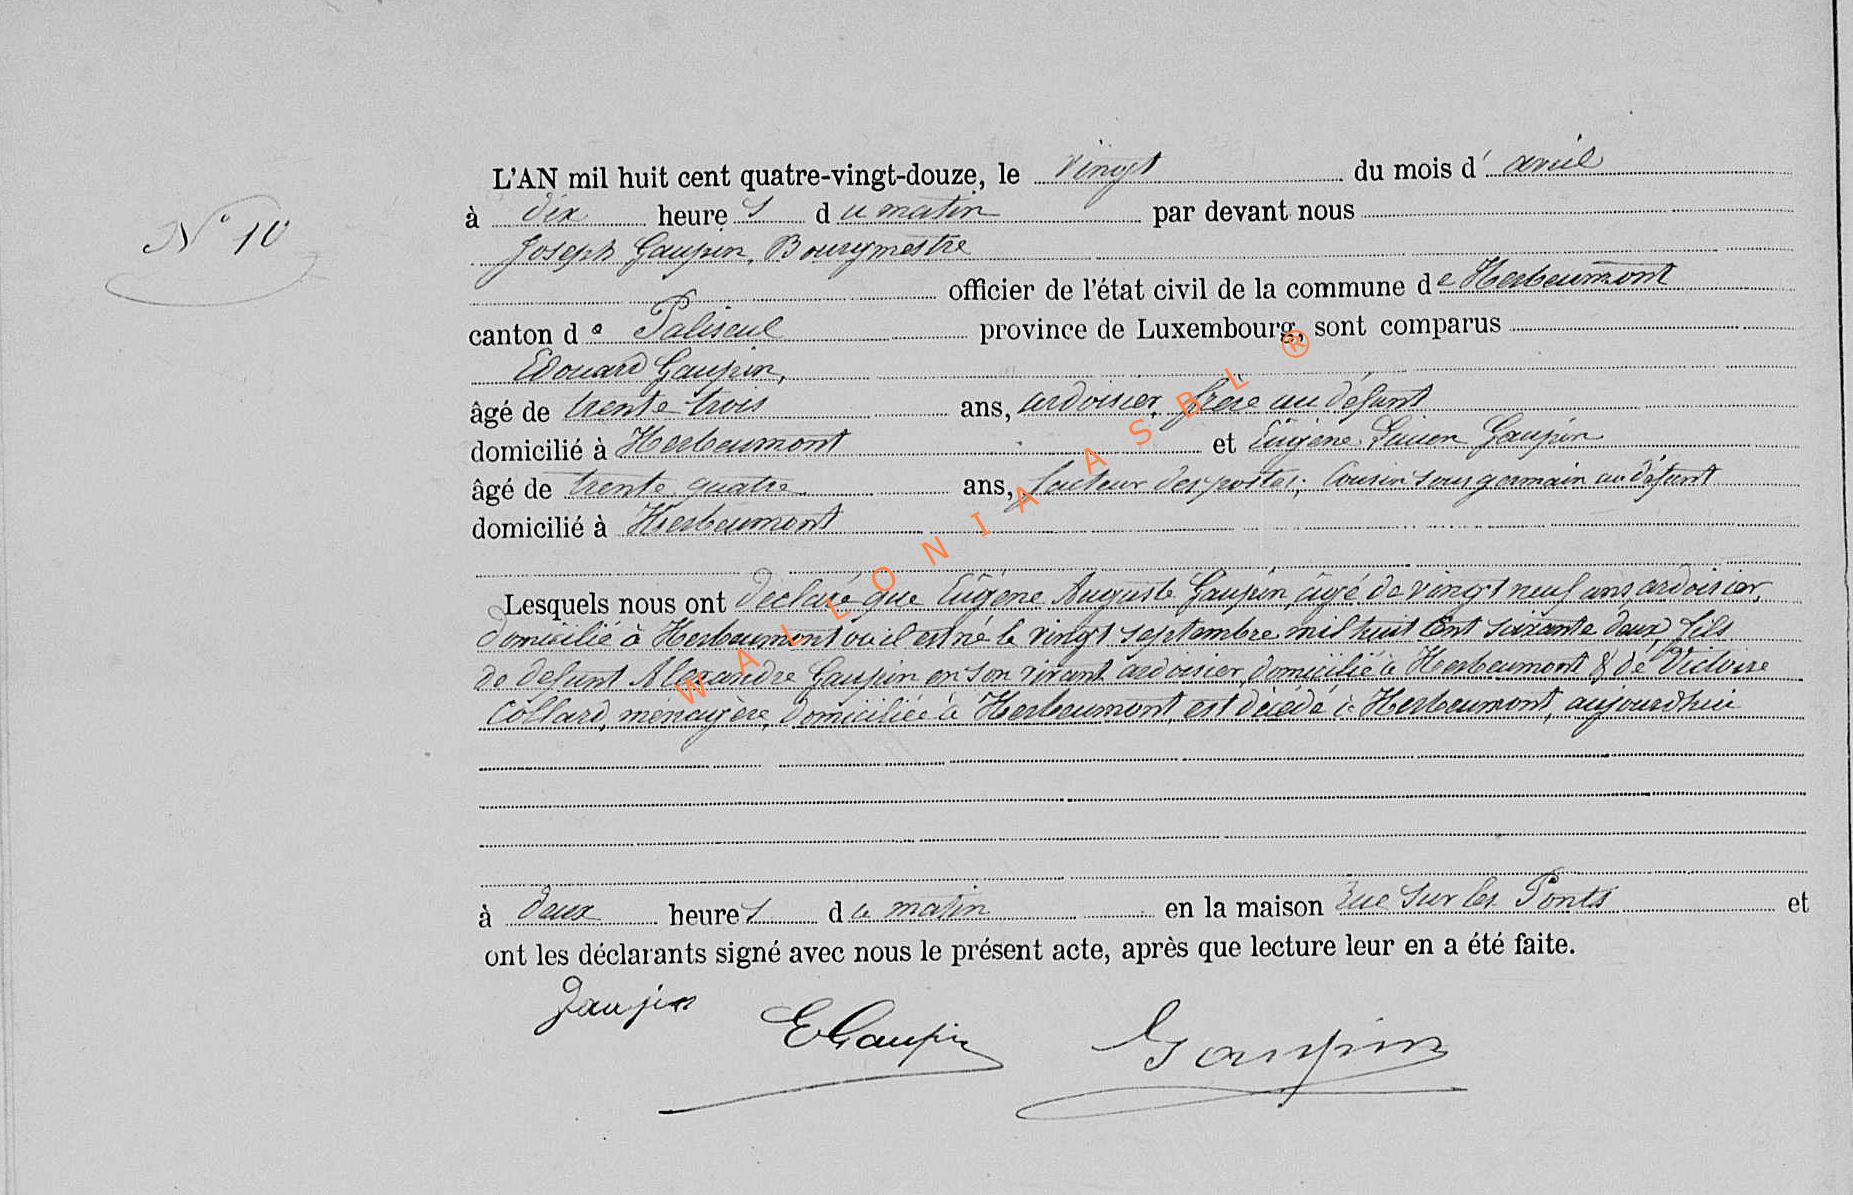 N° 10
L'AN mil huit cent quatre-vingt-douze, le vingt du mois d'avril
à dix heures du matin par devant nous
Joseph Gaupin, Bourgmestre
officier de l'état civil de la commune de Herbeumont
canton de Paliseul province de Luxembourg, sont comparus
Edouard Gaupin,
âgé de trente trois ans, ardoisier, frère au défunt
domicilié à Herbeumont et Eugène Lucien Gaupin
âgé de trente quatre ans, facteur des postes, Cousin sous germain au défunt
domicilié à Herbeumont
Lesquels nous ont déclaré que Eugène Auguste Gaupin, âgé de vingt neuf ans ardoisier,
domicilié à Herbeumont où il est né le vingt septembre mil huit Cent soixante deux, fils
de defunt Alexandre Gaupin en son vivant ardoisier, domicilié à Herbeumont & de Victoire
Collard, ménagère, domiciliée à Herbeumont, est décédé à Herbeumont, aujourd'hui
à deux heures du matin en la maison rue Sur les Ponts et
ont les déclarants signé avec nous le présent acte, après que lecture leur en a été faite.
Gaupin EGaupin Gaupin
WALLONIA ASBL ®